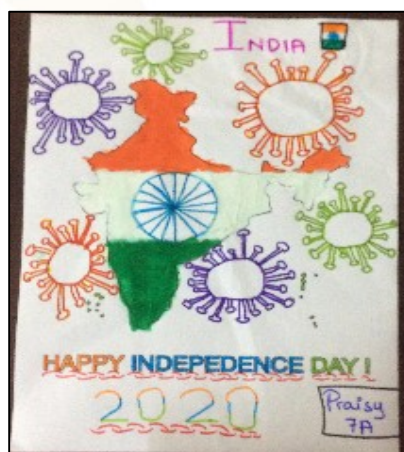 INDIA
HAPPY INDEPEDENCE DAY !
2020
Praisy
7A